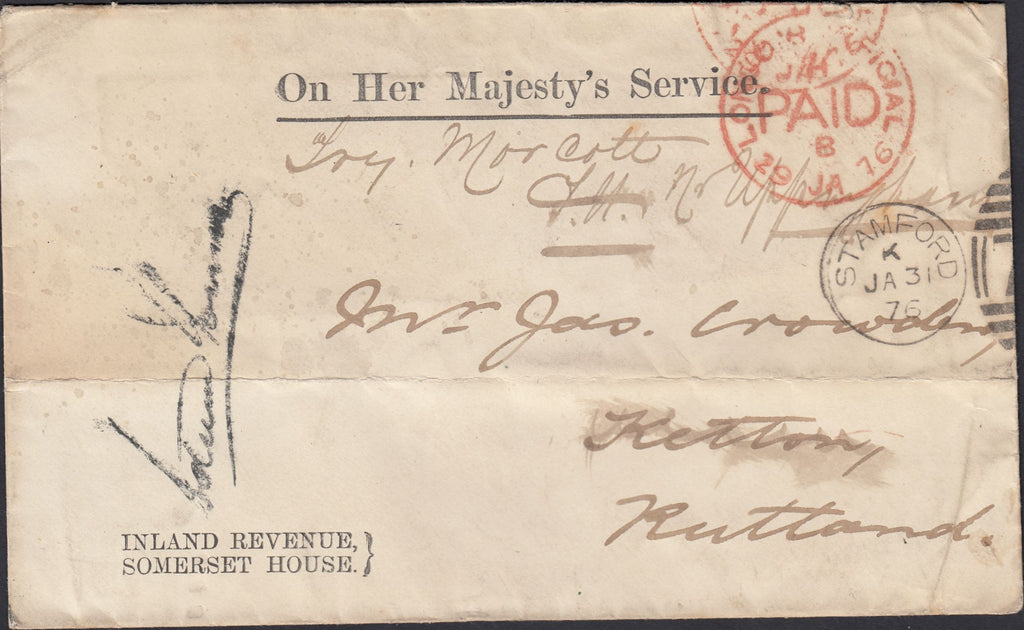 On Her Majesty's Service.
LONDON OFFICIAL
PAID
B
29 JA 76
Try. Morcott
Nr Uppingham
STAMFORD
K
JA 31
76
Mr Jas. Crowden,
Ketton,
Rutland.
INLAND REVENUE,
SOMERSET HOUSE.